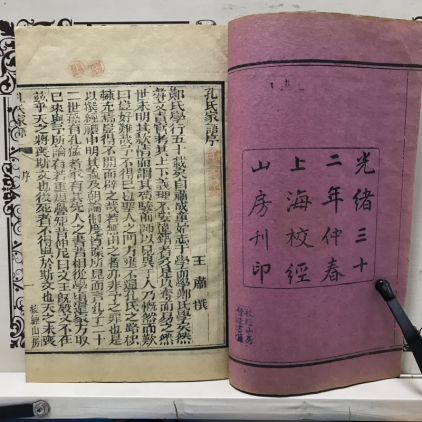 光緒三十
二年仲春
上海校經
山房刊印
孔氏家語序
王肅撰
鄭氏學行五十載矣自肅成童始志于學而學鄭氏學矣然
尋文責實考其上下義理不安違錯者多是以奪而易之然
世未明其款情而謂其苟駮前師以見異于人乃慨然而歎
曰豈好難哉予不得已也聖人之門方壅不通孔氏之路枳
棘充焉豈得不開而辟之哉若無由之者亦非予之罪也是
以撰經禮申明其義及朝論制度皆據所見而言孔子二十
二世孫有孔猛者家有其先人之書昔相從學頃還家方取
已來與予所論有若重規疊矩昔仲尼曰文王既沒文不在
茲乎天之將喪斯文也後死者不得與於斯文也天之未喪
序
校經山房